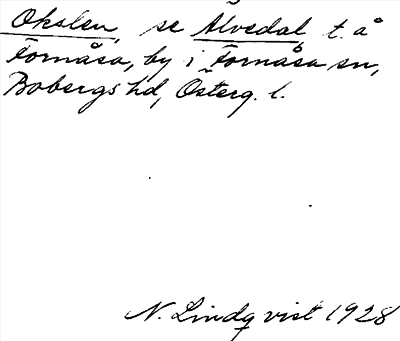 Okslen, se Älvedal, t. å
Fornåsa, by i Fornåsa sn,
Bobergs hd, Österg. l.
N. Lindqvist 1928